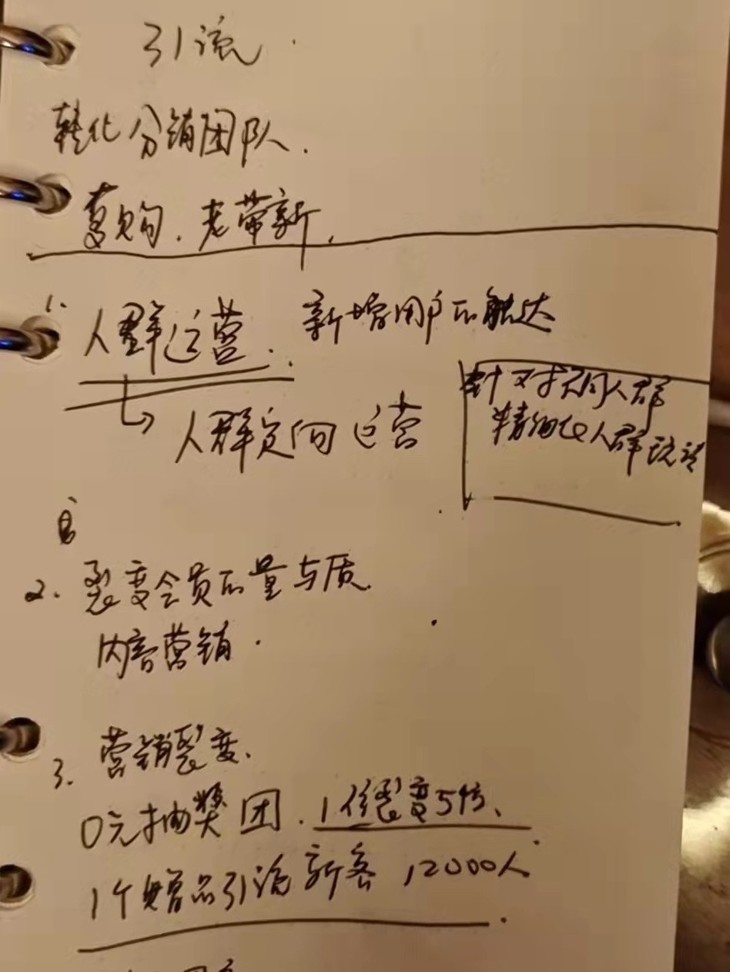 引流
转化分销团队.
复购.老带新.
1. 人群运营. 新增用户的触达
针对不同人群
精细化人群玩法
人群定向运营
2. 裂变会员的量与质
内容营销.
3. 营销裂变.
0元抽奖团.1传裂变5传、
1个赠品引流新客 12000人